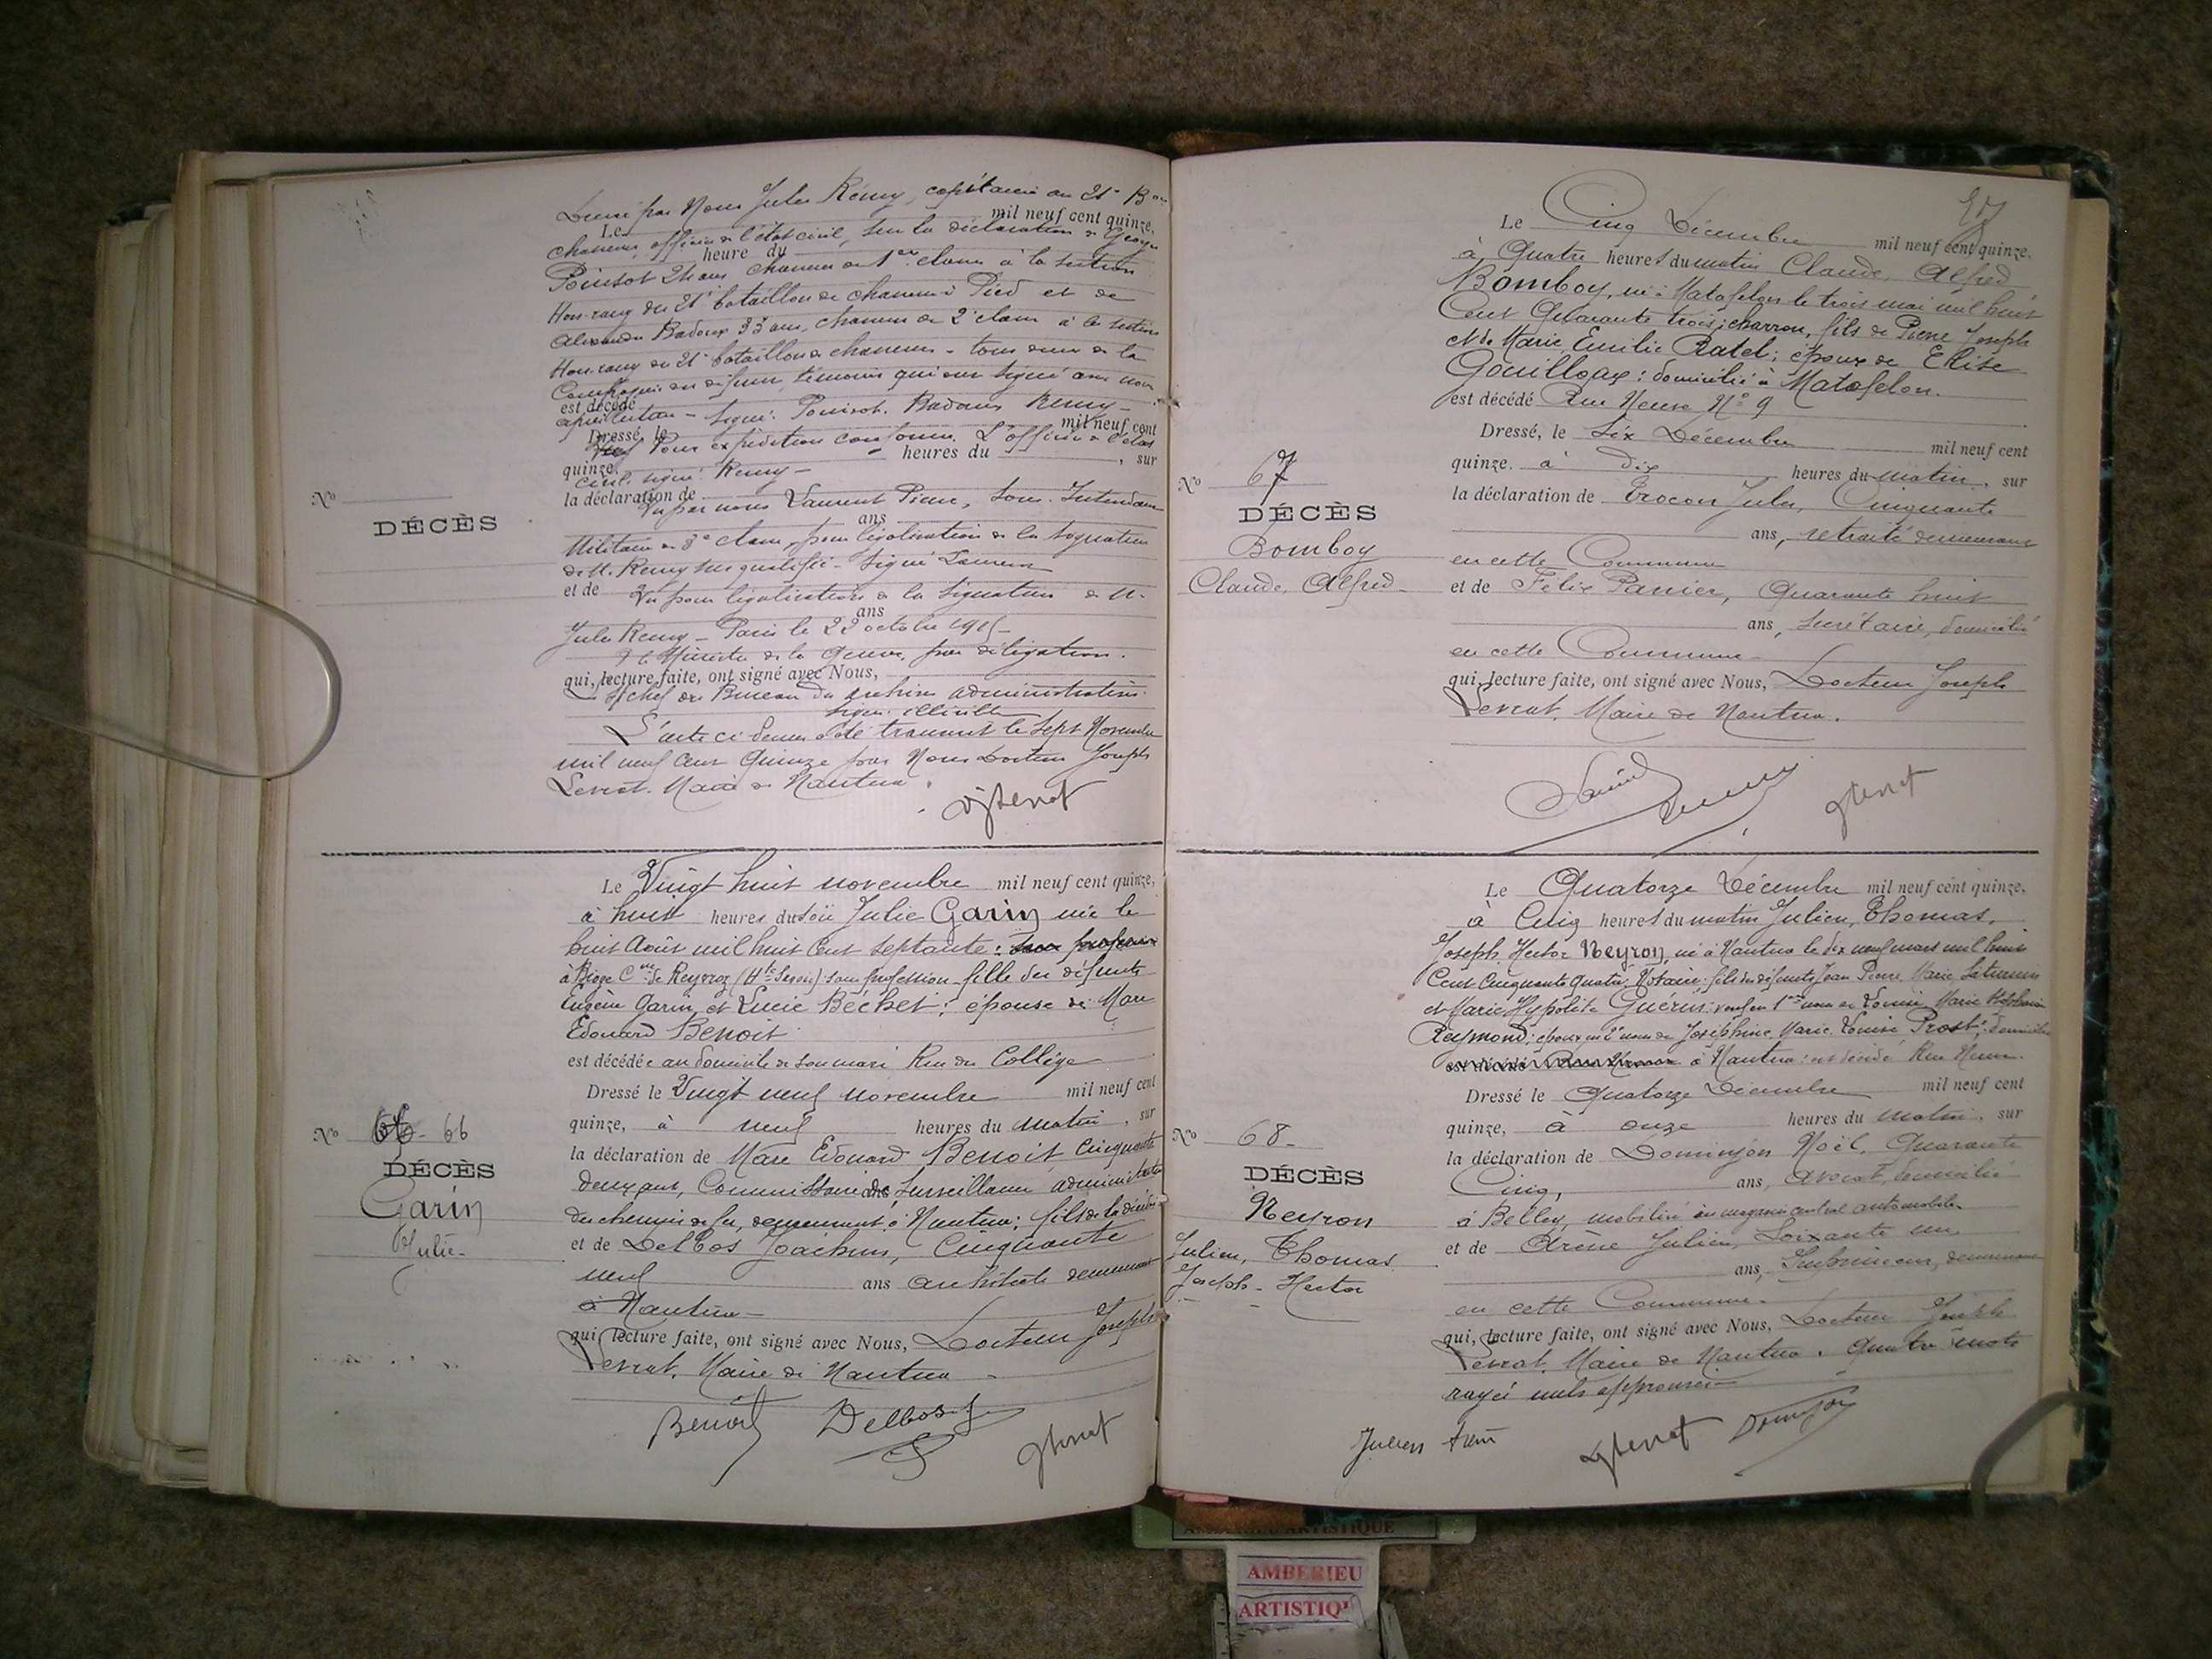 Dressé par Nous Jules Rémy, capitaine au 21e Bon
Le mil neuf cent quinze,
chasseurs, officier de l'état civil, sur la déclaration de Georges
heure du
Poinsot 24 ans chasseur de 1ère classe à la section
Hors rang du 21e bataillon de chasseurs à Pied et de
Alexandre Badoux 33 ans, chasseur de 2e classe à la section
Hors rang du 21e bataillon de chasseurs - tous deux de la
Compagnie du défunt, témoins qui ont signé avec nous
est décédé
après lecture - Signé: Poinsot. Badoux Remy -
mil neuf cent
Dressé, le
Pour expédition conforme. L'officier de l'état
quinze, heures du , sur
civil. signé: Remy -
No
la déclaration de
Vu par nous Laurent Pierre, Sous-Intendant
DÉCÈS
ans
Militaire de 3e classe, pour légalisation de la signature
de M. Remy sus qualifié - Signé Laurent
et de
Vu pour légalisation de la signature de M.
ans
Jules Remy - Paris le 22 octobre 1915 -
Le Ministre de la Guerre, par délégation.
qui, lecture faite, ont signé avec Nous,
Le S/chef du Bureau des archives administratives.
signé: illisible
L'acte ci dessus a été transcrit le Sept Novembre
mil neuf Cent Quinze par Nous Docteur Joseph
Levrat. Maire de Nantua.
Levrat
Le Vingt huit novembre mil neuf cent quinze,
à huit heures du soir Julie Garin née le
huit Août mil huit Cent septante: sans profession
à Bioge Cne de Reyvroz (Hte-Savoie) sans profession fille des défunts
Eugène Garin et Lucie Béchet: épouse de Marc
Edouard Benoit
est décédée au domicile de son mari Rue du Collège
Dressé le Vingt neuf novembre mil neuf cent
No 66
quinze, à neuf heures du matin, sur
DÉCÈS
la déclaration de Marc Edouard Benoit Cinquante
Garin
deux ans, Commissaire de Surveillance administrative
Julie -
des chemins de fer, demeurant à Nantua;
et de Delbos Joachim, Cinquante
neuf ans architecte demeurant
à Nantua -
qui, lecture faite, ont signé avec Nous, Docteur Joseph
Levrat, Maire de Nantua -
Benoit Delbos J. Levrat
Le Cinq Décembre mil neuf cent quinze.
à Quatre heures du matin Claude, Alfred
Bomboy, né à Matafelon le trois mai mil huit
Cent Quarante trois; charron, fils de Pierre Joseph
et de Marie Emilie Ratel; époux de Elise
Gouilloax: domicilié à Matafelon.
est décédé Rue Neuve No 9
Dressé, le Six Décembre mil neuf cent
No 67
quinze. à dix heures du matin, sur
DÉCÈS
la déclaration de Trocon Jules, Cinquante
Bomboy
ans, retraité demeurant
Claude, Alfred -
en cette Commune
et de Félix Panier, Quarante huit
ans, Secrétaire, domicilié
en cette Commune -
qui, lecture faite, ont signé avec Nous, Docteur Joseph
Levrat, Maire de Nantua.
Levrat
Le Quatorze Décembre mil neuf cent quinze,
à Cinq heures du matin Julien, Thomas,
Joseph, Hector Neyron, né à Nantua le dix neuf mars mil huit
Cent Cinquante Quatre, Notaire: fils des défunts Jean Pierre Marie
et Marie Hypolite Guérin: veuf en 1ères noces de Louise Marie
Reymond; époux en 2e noces de Joséphine Marie Louise Prost; domicilié
à Nantua: est décédé Rue Neuve.
Dressé le Quatorze Décembre mil neuf cent
No 68 -
quinze, à onze heures du matin, sur
DÉCÈS
la déclaration de Dominjon Noël, Quarante
Neyron
Cinq, ans, avocat, domicilié
Julien, Thomas
à Belley, mobilisé au magasin central automobile
Joseph - Hector
et de Arène Julien, Soixante un
ans, Imprimeur, demeurant
en cette Commune.
qui, lecture faite, ont signé avec Nous, Docteur Joseph
Levrat. Maire de Nantua. Quatre mots
rayés nuls approuvés -
Julien Arène Levrat Dominjon
AMBERIEU ARTISTIQUE
AMBERIEU
ARTISTIQ